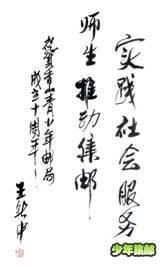 实践社会服务
师生推动集邮
祝贺香山青少年邮局
成立十周年
少年集邮